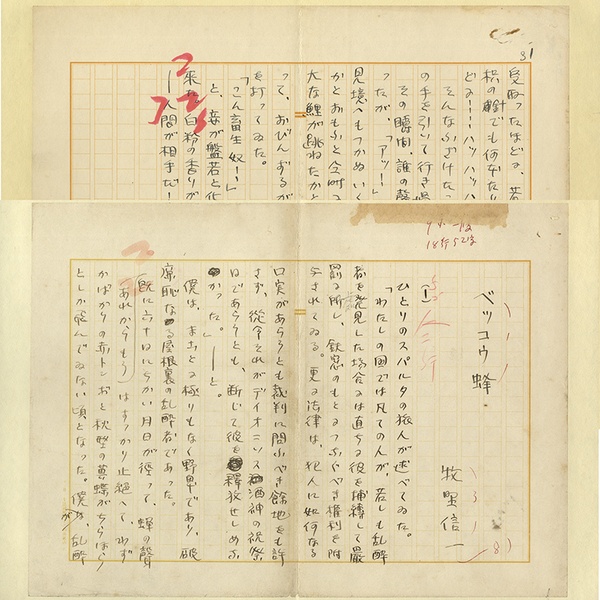 31
受取つたほどよ、若
どよ——ハッハッハッ
そんなふざけたつ
の手を引いて行き過
その瞬間、誰の聲
つたが、「アッ!」
見境へもつかぬいく
かとおもふと今
大な鯉が跳ねたかと
つて、おびんずるが
を打つてゐた。
「こん畜生奴!—」
と、妾が盤若と化
来た白粉の香りが
—人間が相手だ!—
9ポ一段
18行52字
ベッコウ蜂
牧野信一
(一)
ひとりのスパルタの旅人が述べてゐた。
「わたしの國では凡ての人が、若しも乱酔
者を発見した場合は直ちに彼を捕縛して嚴
罰に所し、鉄窓のもとにつなぐべき権利を附
与されてゐる。更に法律は、犯人に如何なる
口実があらうとも裁判に問ふべき餘地をも許
さず、從令それがデイオニソス酒神の祝祭
日であらうとも、断じて彼を釋放せしめぬ
かつた。」—と。
僕は、まことに極りもなく野卑であり、破
廉恥なる屋根裏の乱酔者であつた。
既に六十日にちかい月日が經つて、蜂の聲
(あれからもう)はすつかり止絶へて、わず
かばかりの赤トンボと秋型の黄蝶がちらほら
としか飛んでゐない頃となつた。僕が、乱酔